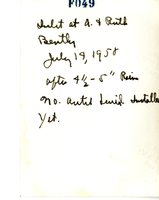 F049
Inlet at A. & Ruth
Bently
July 19, 1958
after 4½-5" Rain
no. until Installe
Yet.